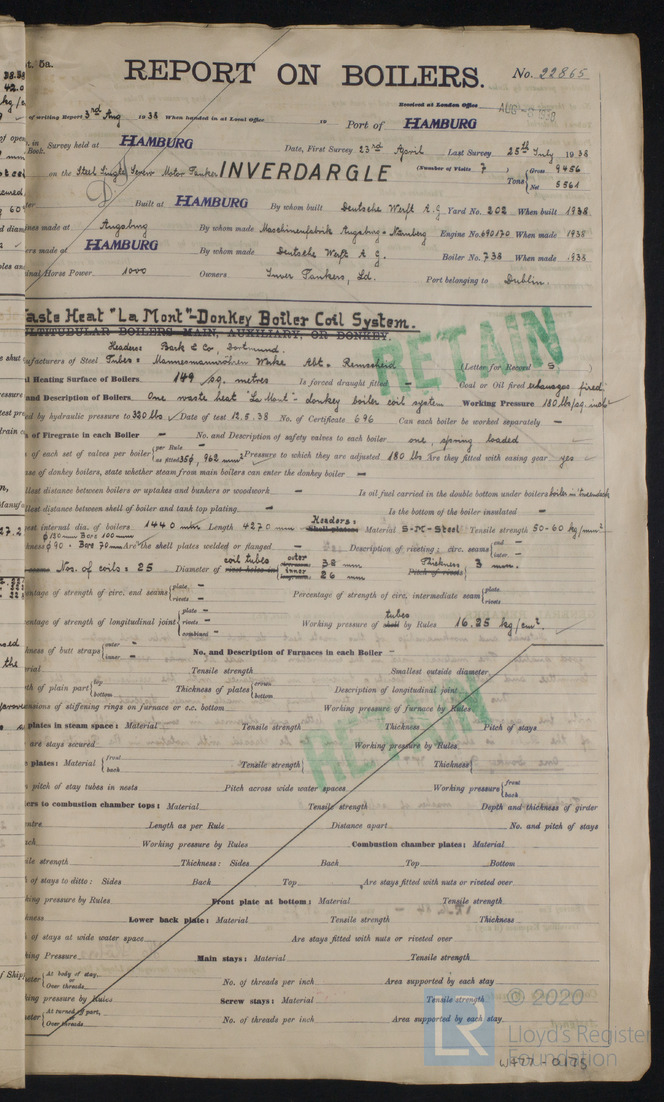 t. 5a.
REPORT ON BOILERS.
No. 22865
Received at London Office AUG -8 1938
of writing Report 3rd Aug 1938 When handed in at Local Office 19 Port of HAMBURG
in Survey held at HAMBURG Date, First Survey 23rd April Last Survey 25th July 1938
Book.
on the Steel Single Screw Motor Tanker INVERDARGLE (Number of Visits 7 ) Tons { Gross 9456
Net 5561
Built at HAMBURG By whom built Deutsche Werft A.G. Yard No. 202 When built 1938
nes made at Augsburg By whom made Maschinenfabrik Augsburg-Nürnberg Engine No. 690170 When made 1938
rs made at HAMBURG By whom made Deutsche Werft A.G. Boiler No. 738 When made 1938
inal Horse Power 1000 Owners Inver Tankers, Ld. Port belonging to Dublin.
aste Heat "La Mont"-Donkey Boiler Coil System.
ULTITUBULAR BOILERS—MAIN, AUXILIARY, OR DONKEY.
RETAIN
Headers: Bark & Co, Dortmund.
ufacturers of Steel Tubes: Mannesmannröhren Werke Abt. Remscheid (Letter for Record S )
l Heating Surface of Boilers 149 sq. metres Is forced draught fitted — Coal or Oil fired exhaustgas fired
and Description of Boilers One waste heat "La Mont"- donkey boiler coil system Working Pressure 180 lbs/sq. inch
ed by hydraulic pressure to 320 lbs. Date of test 12.5.38 No. of Certificate 696 Can each boiler be worked separately —
of Firegrate in each Boiler — No. and Description of safety valves to each boiler one, spring loaded
of each set of valves per boiler { per Rule —
as fitted 35φ, 962 mm² Pressure to which they are adjusted 180 lbs Are they fitted with easing gear yes
se of donkey boilers, state whether steam from main boilers can enter the donkey boiler —
llest distance between boilers or uptakes and bunkers or woodwork — Is oil fuel carried in the double bottom under boilers boiler in 'tweendeck
llest distance between shell of boiler and tank top plating — Is the bottom of the boiler insulated —
est internal dia. of boilers 1440 mm Length 4270 mm Headers: Shell plates: Material S-M-Steel Tensile strength 50-60 kg/mm²
φ 130 mm Bore 100 mm
kness φ 90 - Bore 70 mm Are the shell plates welded or flanged — Description of riveting: circ. seams { end —
inter —
Nos. of coils: 25 Diameter of coil tubes { outer 32 mm
inner 26 mm Thickness Pitch of rivets { 3 mm.
entage of strength of circ. end seams { plate —
rivets — Percentage of strength of circ. intermediate seam { plate
rivets
entage of strength of longitudinal joint { plate —
rivets —
combined — Working pressure of tubes shell by Rules 16.25 kg/cm²
kness of butt straps { outer —
inner — No. and Description of Furnaces in each Boiler —
rial Tensile strength Smallest outside diameter
th of plain part { top
bottom Thickness of plates { crown
bottom Description of longitudinal joint
ensions of stiffening rings on furnace or c.c. bottom Working pressure of furnace by Rules
RETAIN
plates in steam space: Material Tensile strength Thickness Pitch of stays
are stays secured Working pressure by Rules
plates: Material { front
back Tensile strength { Thickness {
pitch of stay tubes in nests Pitch across wide water spaces Working pressure { front
back
ers to combustion chamber tops: Material Tensile strength Depth and thickness of girder
entre Length as per Rule Distance apart No. and pitch of stays
ach Working pressure by Rules Combustion chamber plates: Material
ile strength Thickness: Sides Back Top Bottom
of stays to ditto: Sides Back Top Are stays fitted with nuts or riveted over
king pressure by Rules Front plate at bottom: Material Tensile strength
kness Lower back plate: Material Tensile strength Thickness
of stays at wide water space Are stays fitted with nuts or riveted over
king Pressure Main stays: Material Tensile strength
meter { At body of stay,
or
Over threads No. of threads per inch Area supported by each stay
king pressure by Rules Screw stays: Material Tensile strength
meter { At turned off part,
or
Over threads No. of threads per inch Area supported by each stay
© 2020
LR Lloyd's Register
Foundation
W477-0175